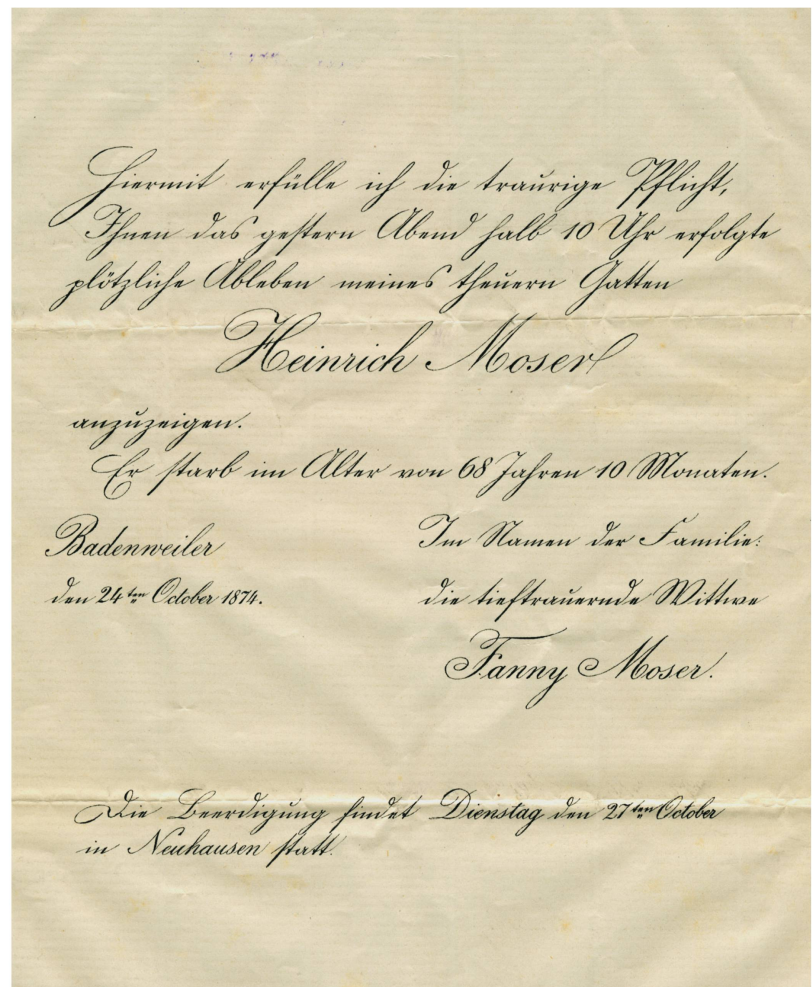 Hiermit erfülle ich die traurige Pflicht,
Ihnen das gestern Abend halb 10 Uhr erfolgte
plötzliche Ableben meines theuern Gatten
Heinrich Moser
anzuzeigen.
Er starb im Alter von 68 Jahren 10 Monaten.
Badenweiler
den 24ten October 1874.
Im Namen der Familie:
die tieftrauernde Wittwe
Fanny Moser.
Die Beerdigung findet Dienstag den 27ten October
in Neuhausen statt.